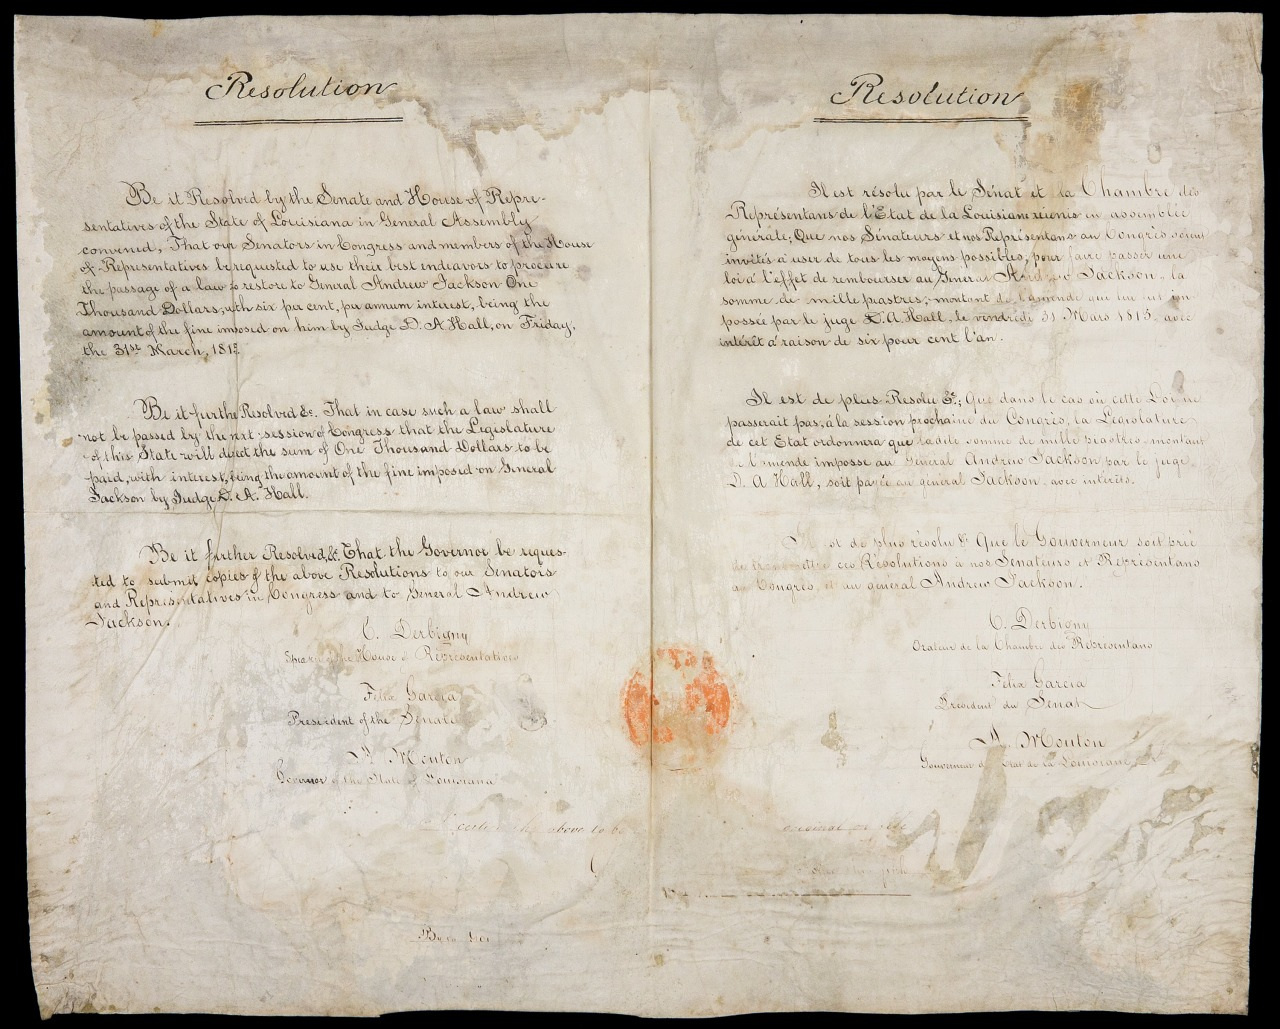 Resolution
Be it Resolved by the Senate and House of Repre-
sentatives of the State of Louisiana in General Assembly
convened, That our Senators in Congress and members of the House
of Representatives be requested to use their best endeavors to procure
the passage of a law to restore to General Andrew Jackson One
Thousand Dollars, with six per cent, per annum interest, being the
amount of the fine imposed on him by Judge D. A Hall, on Friday,
the 31st March, 181
Be it further Resolved &c. That in case such a law shall
not be passed by the next session of Congress that the Legislature
of this State will direct the sum of One Thousand Dollars to be
paid, with interest, being the amount of the fine imposed on General
Jackson by Judge D. A. Hall.
Be it further Resolved, &c. That the Governor be reques-
ted to submit copies of the above Resolutions to our Senators
and Representatives in Congress and to General Andrew
Jackson.
C. Derbigny
Speaker of the House of Representatives
Felix Garcia
President of the Senate
A. Mouton
Governor of the State of Louisiana
Resolution
Il est résolu par le Sénat et la Chambre des
Représentans de l'Etat de la Louisiane réunis en assemblée
générale; Que nos Sénateurs et nos Représentans au Congrès soient
invités à user de tous les moyens possibles, pour faire passer une
loi à l'effet de rembourser au Général Andrew Jackson, la
somme de mille piastres, montant de l'amende que lui fut im
possée par le juge D. A. Hall, le vendredi 31 Mars 1815, avec
intérêt à raison de six pour cent l'an.
Il est de plus Resolu &c; Que dans le cas où cette Loi ne
passerait pas, à la session prochaine du Congrès, la Législature
de cet Etat ordonnera que ladite somme de mille piastres montant
l'amende imposse au Général Andrew Jackson par le juge
D. A Hall, soit payée au général Jackson, avec intérêts.
Il est de plus résolu &c Que le Gouverneur soit prié
de transmettre ces Résolutions à nos Senateurs et Représentans
au Congrès, et au général Andrew Jackson.
C. Derbigny
Orateur de la Chambre des Représentans
Félix Garcia
Président du Sénat
A. Mouton
Gouverneur de l'Etat de la Louisiane
above to be
original